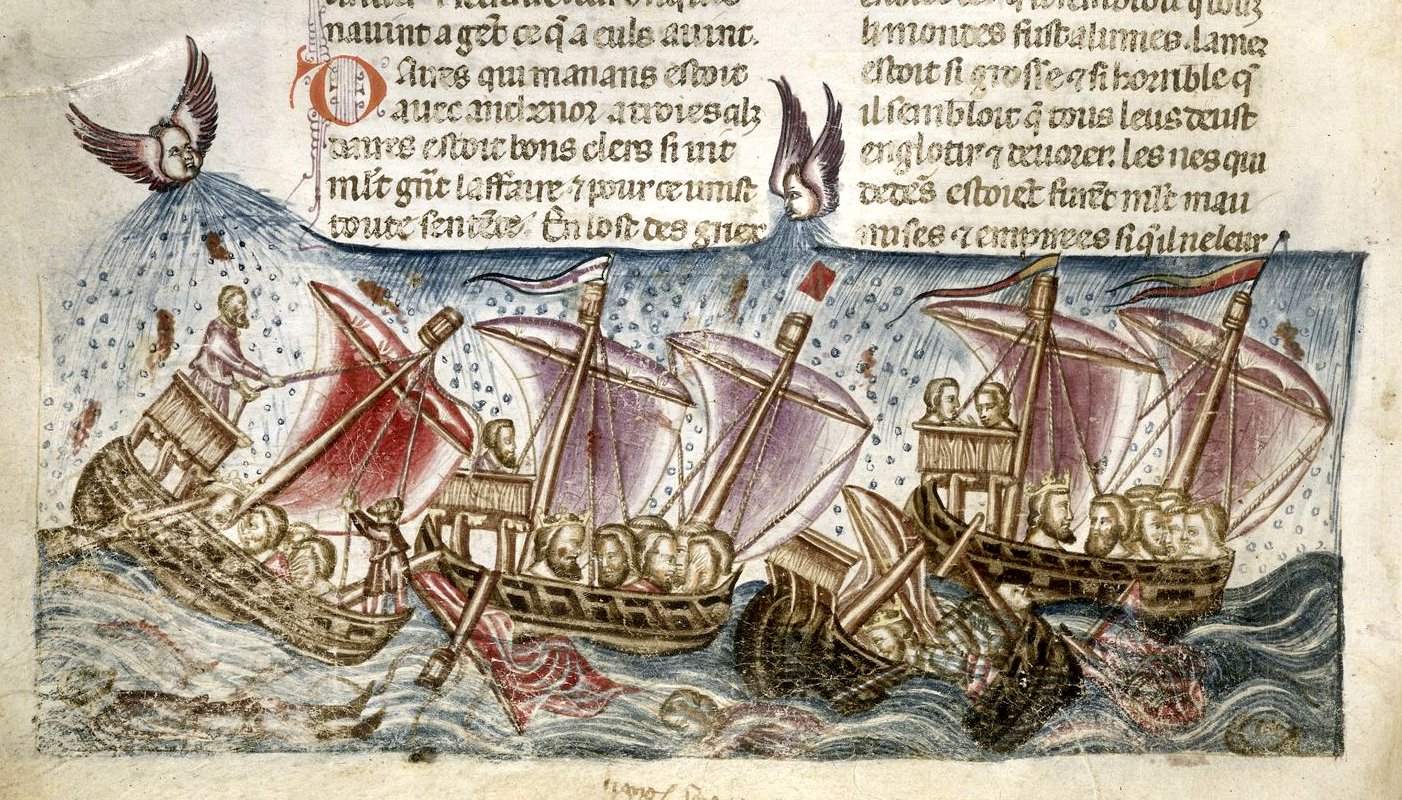 nauint a gͬet ce q̃ a euls auint.
Daires qui manans estoit
auec anthenor a troies qͣꝫ
daires estoit bons clers si uit
ml̃t gñt laffaire ⁊ pour ce umist
toute sent̃ce. En lost des griex
li mondes fust alumes. la mer
estoit si grosse ⁊ si horrible q̃
il sembloit q̃ tous leus deust
englotir ⁊ deuorer. les nes qui
dedẽs estoiẽt furẽt ml̃t mau
mises ⁊ empirees si q̃l ne leur